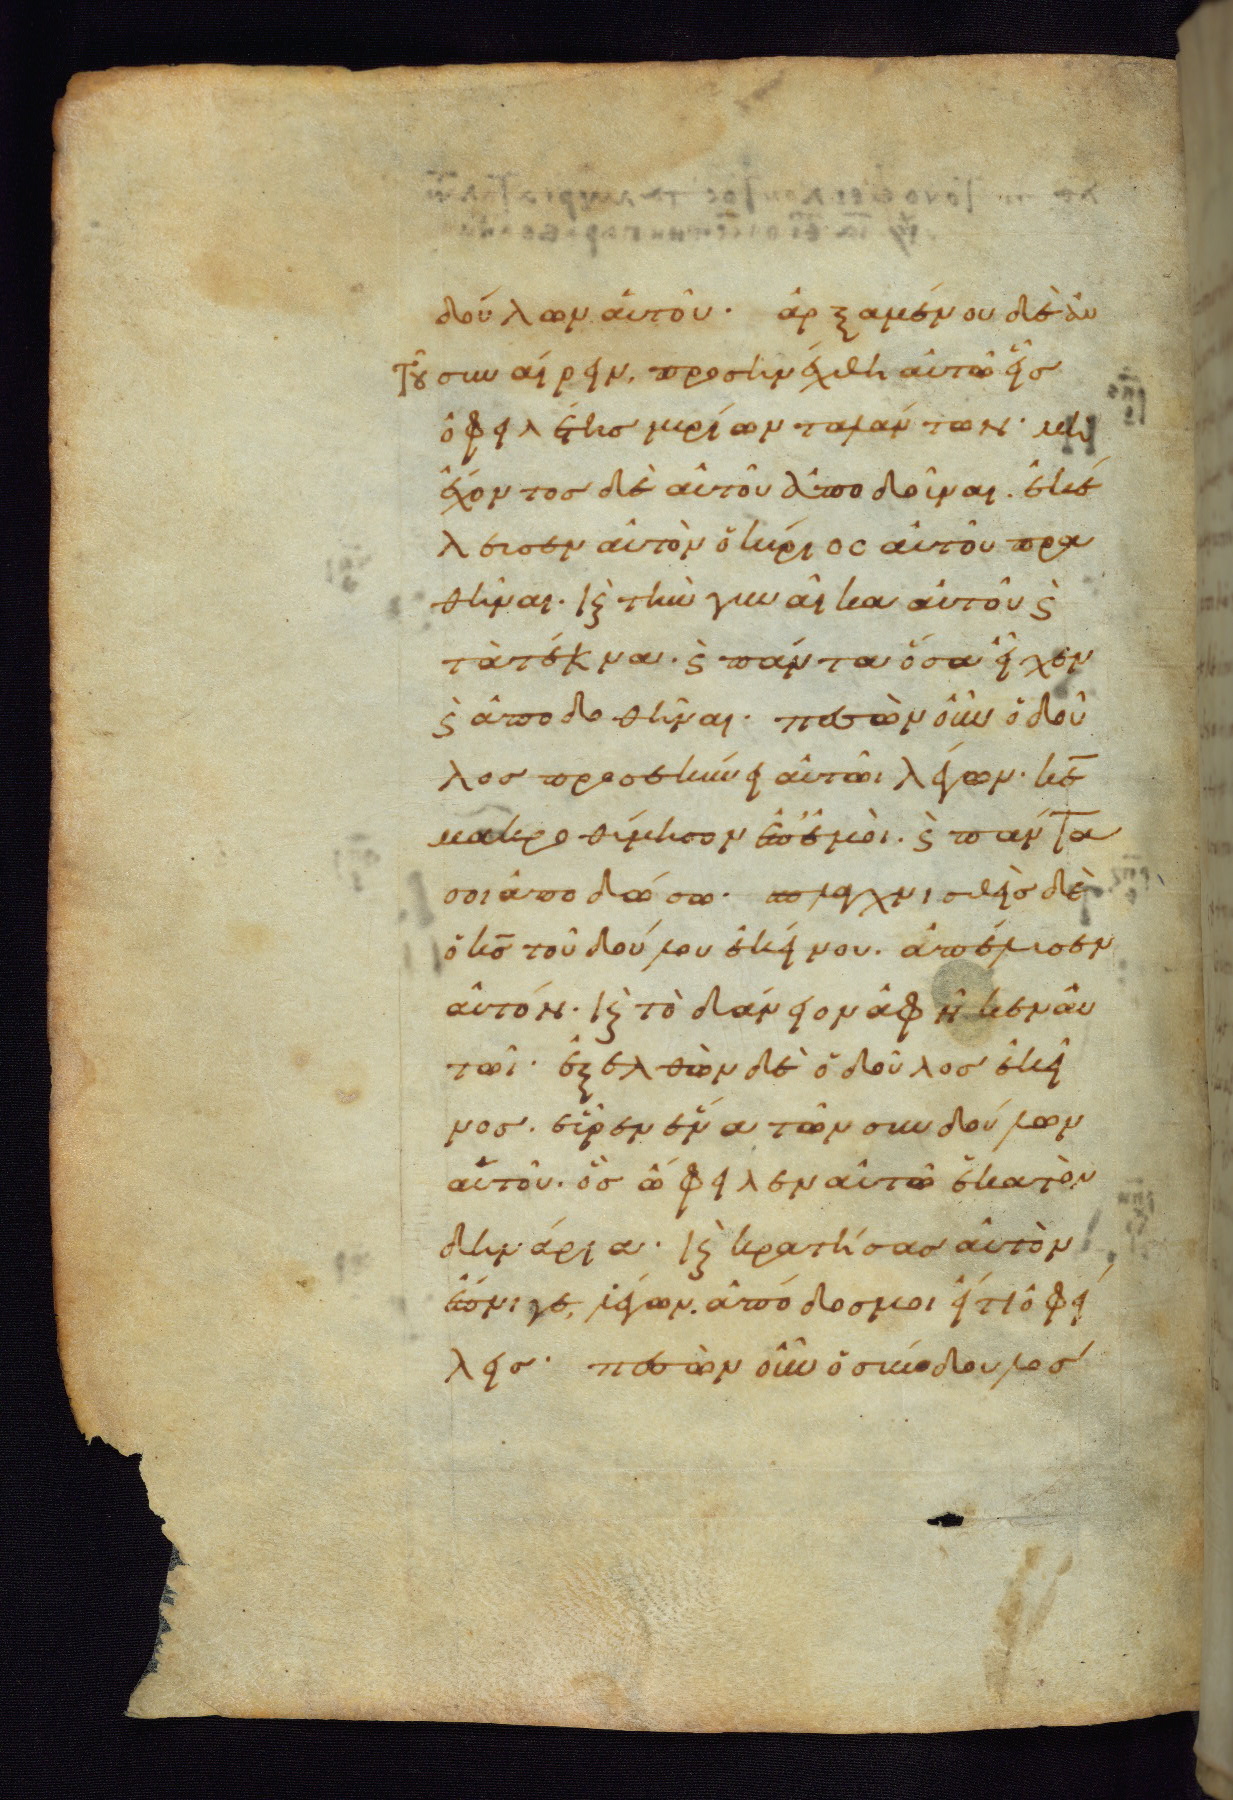 δούλων αὐτοῦ. ἀρξαμένου δὲ αὐ
τοῦ συναίρειν, προσηνέχθη αὐτῶ εἷς
ὀφειλέτης μυρίων ταλάντων. μὴ
ἔχοντος δὲ αὐτοῦ ἀποδοῦναι. ἐκέ
λευσεν αὐτὸν ὁ κύριος αὐτοῦ πρα
θῆναι. καὶ τὴν γυναῖκα αὐτοῦ ϛ
τὰ τέκνα. ϛ πάντα ὅσα εἶχεν
ϛ ἀποδοθῆναι. πεσὼν οὖν ὁ δοῦ
λος προσεκύνει αὐτῶι λέγων. κε̅
μακροθύμησον ἐπ' ἐμοὶ. ϛ πάντα
σοι ἀποδώσω. σπλαγχνισθεὶς δὲ
ὁ κς̅ τοῦ δούλου ἐκείνου. ἀπέλυσεν
αὐτόν. καὶ τὸ δάνειον ἀφῆκεν αὐ
τῶι. ἐξελθὼν δὲ ὁ δοῦλος ἐκεῖ
νος. εὗρεν ἕνα τῶν συνδούλων
αὐτοῦ. ὃς ὤφειλεν αὐτῶ ἑκατὸν
δηνάρια. καὶ κρατήσας αὐτὸν
ἔπνιγε, λέγων. ἀπόδος μοι εἴ τι ὀφεί
λεις. πεσὼν οὖν ὁ σύνδουλος